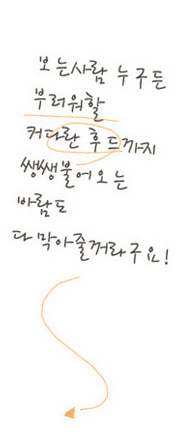 보는사람 누구든
부러워할
커다란 후드까지
쌩쌩불어오는
바람도
다 막아줄꺼라구요!